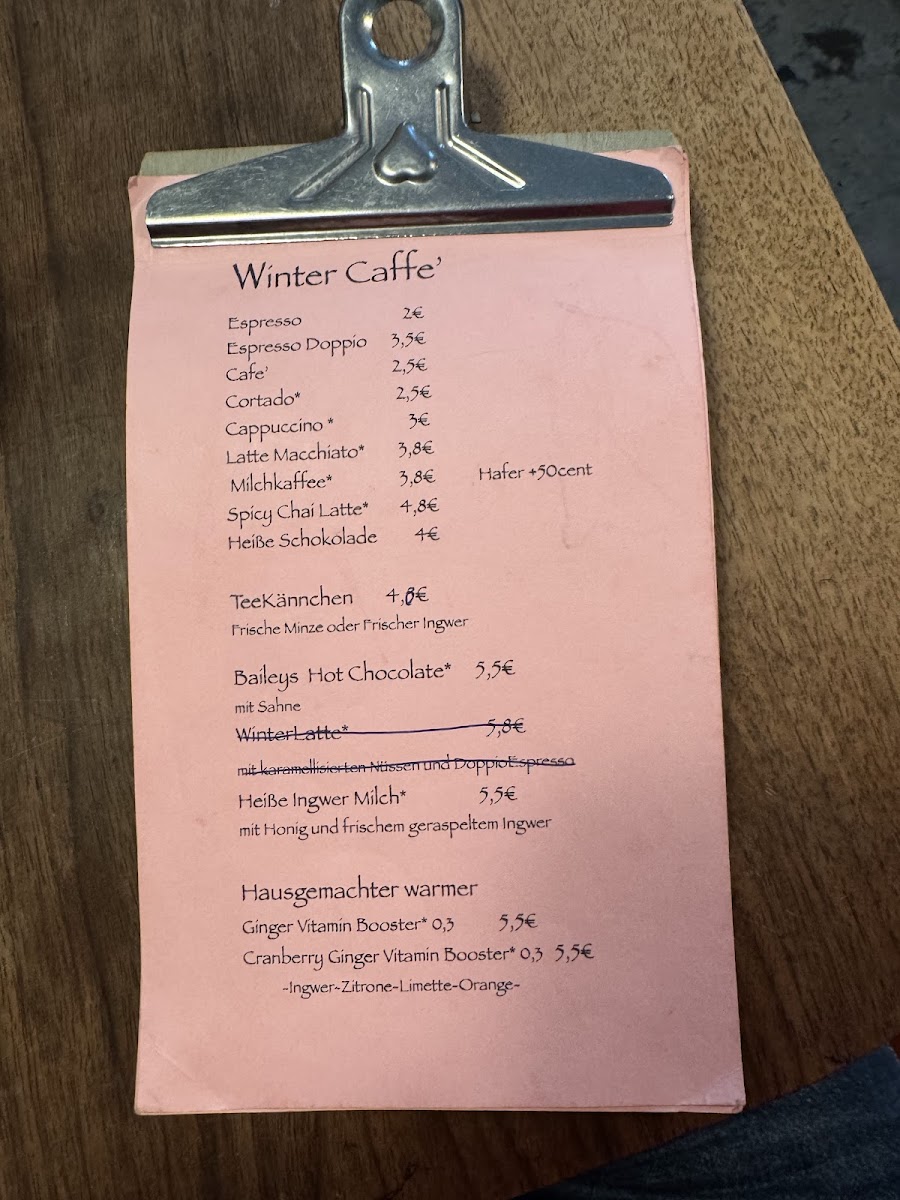 Winter Caffe'
Espresso 2€
Espresso Doppio 3,5€
Cafe' 2,5€
Cortado* 2,5€
Cappuccino * 3€
Latte Macchiato* 3,8€
Milchkaffee* 3,8€ Hafer +50cent
Spicy Chai Latte* 4,8€
Heiße Schokolade 4€
TeeKännchen 4,8€
Frische Minze oder Frischer Ingwer
Baileys Hot Chocolate* 5,5€
mit Sahne
WinterLatte* 5,8€
mit karamellisierten Nüssen und DoppioEspresso
Heiße Ingwer Milch* 5,5€
mit Honig und frischem geraspeltem Ingwer
Hausgemachter warmer
Ginger Vitamin Booster* 0,3 5,5€
Cranberry Ginger Vitamin Booster* 0,3 5,5€
-Ingwer-Zitrone-Limette-Orange-